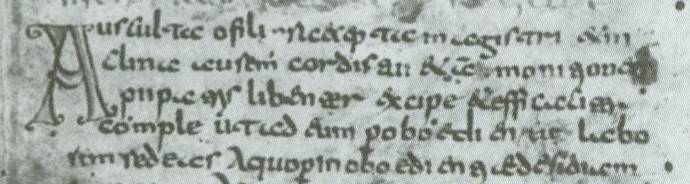 Ausculta o fili precepta magistri & in
clina aurem cordis tui & ammonicione
pii patris libenter excipe & efficaciter
comple ut ad eum p oboedientie labo
rem redeas A quo p inoboedientie desidiam